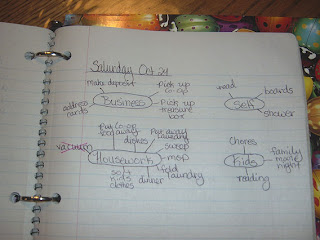 Saturday Oct 24
make deposit
Pick up
co-op
address
cards
Business
Pick up
treasure
box
read
boards
Self
shower
Put co-op
box away
dishes
Put away
laundry
sweep
vacuum
Housework
mop
fold
laundry
sort
kids
clothes
dinner
Chores
Kids
family
movie
night
reading